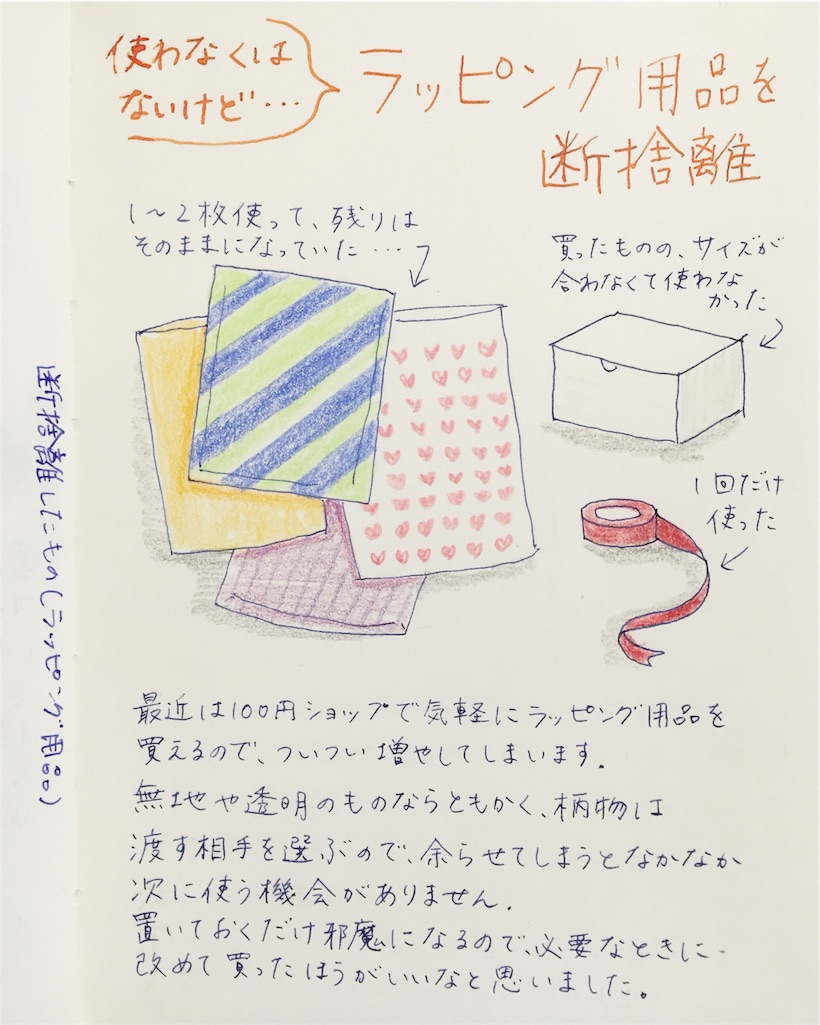 使わなくは
ないけど…
ラッピング用品を
断捨離
1〜2枚使って、残りは
そのままになっていた…
買ったものの、サイズが
合わなくて使わな
かった
1回だけ
使った
最近は100円ショップで気軽にラッピング用品を
買えるので、ついつい増やしてしまいます.
無地や透明のものならともかく、柄物は
渡す相手を選ぶので、余らせてしまうとなかなか
次に使う機会がありません.
置いておくだけ邪魔になるので、必要なときに
改めて買ったほうがいいなと思いました。
断捨離したもの(ラッピング用品)